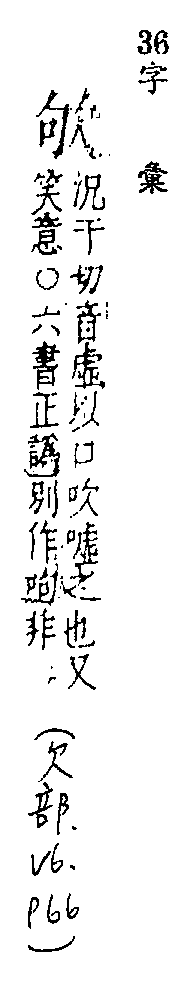 36字彙
欨 況于切音虛以口吹噓之也又
笑意○六書正譌別作呴非
(欠部.V6.P66)